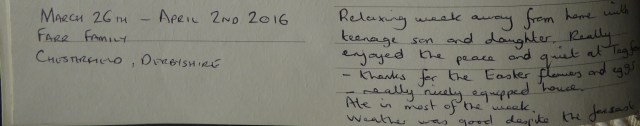 MARCH 26TH - APRIL 2ND 2016
FARR FAMILY
CHESTERFIELD, DERBYSHIRE
Relaxing week away from home with
teenage son and daughter. Really
enjoyed the peace and quiet at
- thanks for the Easter flowers and eggs!
- really nicely equipped house.
Ate in most of the week.
Weather was good despite the forecast